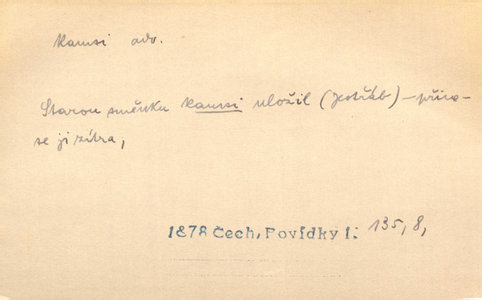 kamsi adv.
Starou směnku kamsi uložil (Jestřáb) – přine-
se ji zítra,
1878 Čech, Povídky I. 135, 8,